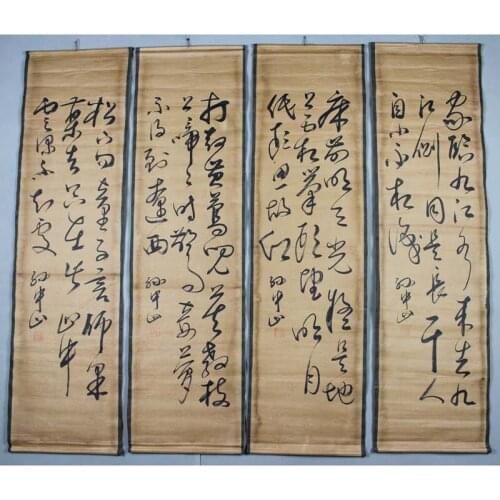 家臨九江水來去九
江側同是長干人
自小不相識
孫中山
床前明月光疑是地
上霜舉頭望明月
低頭思故鄉
孫中山
打起黃鶯兒莫教枝
上啼啼時驚妾夢
不得到遼西
孫中山
松下問童子言師采
藥去只在此山中
雲深不知處
孫中山